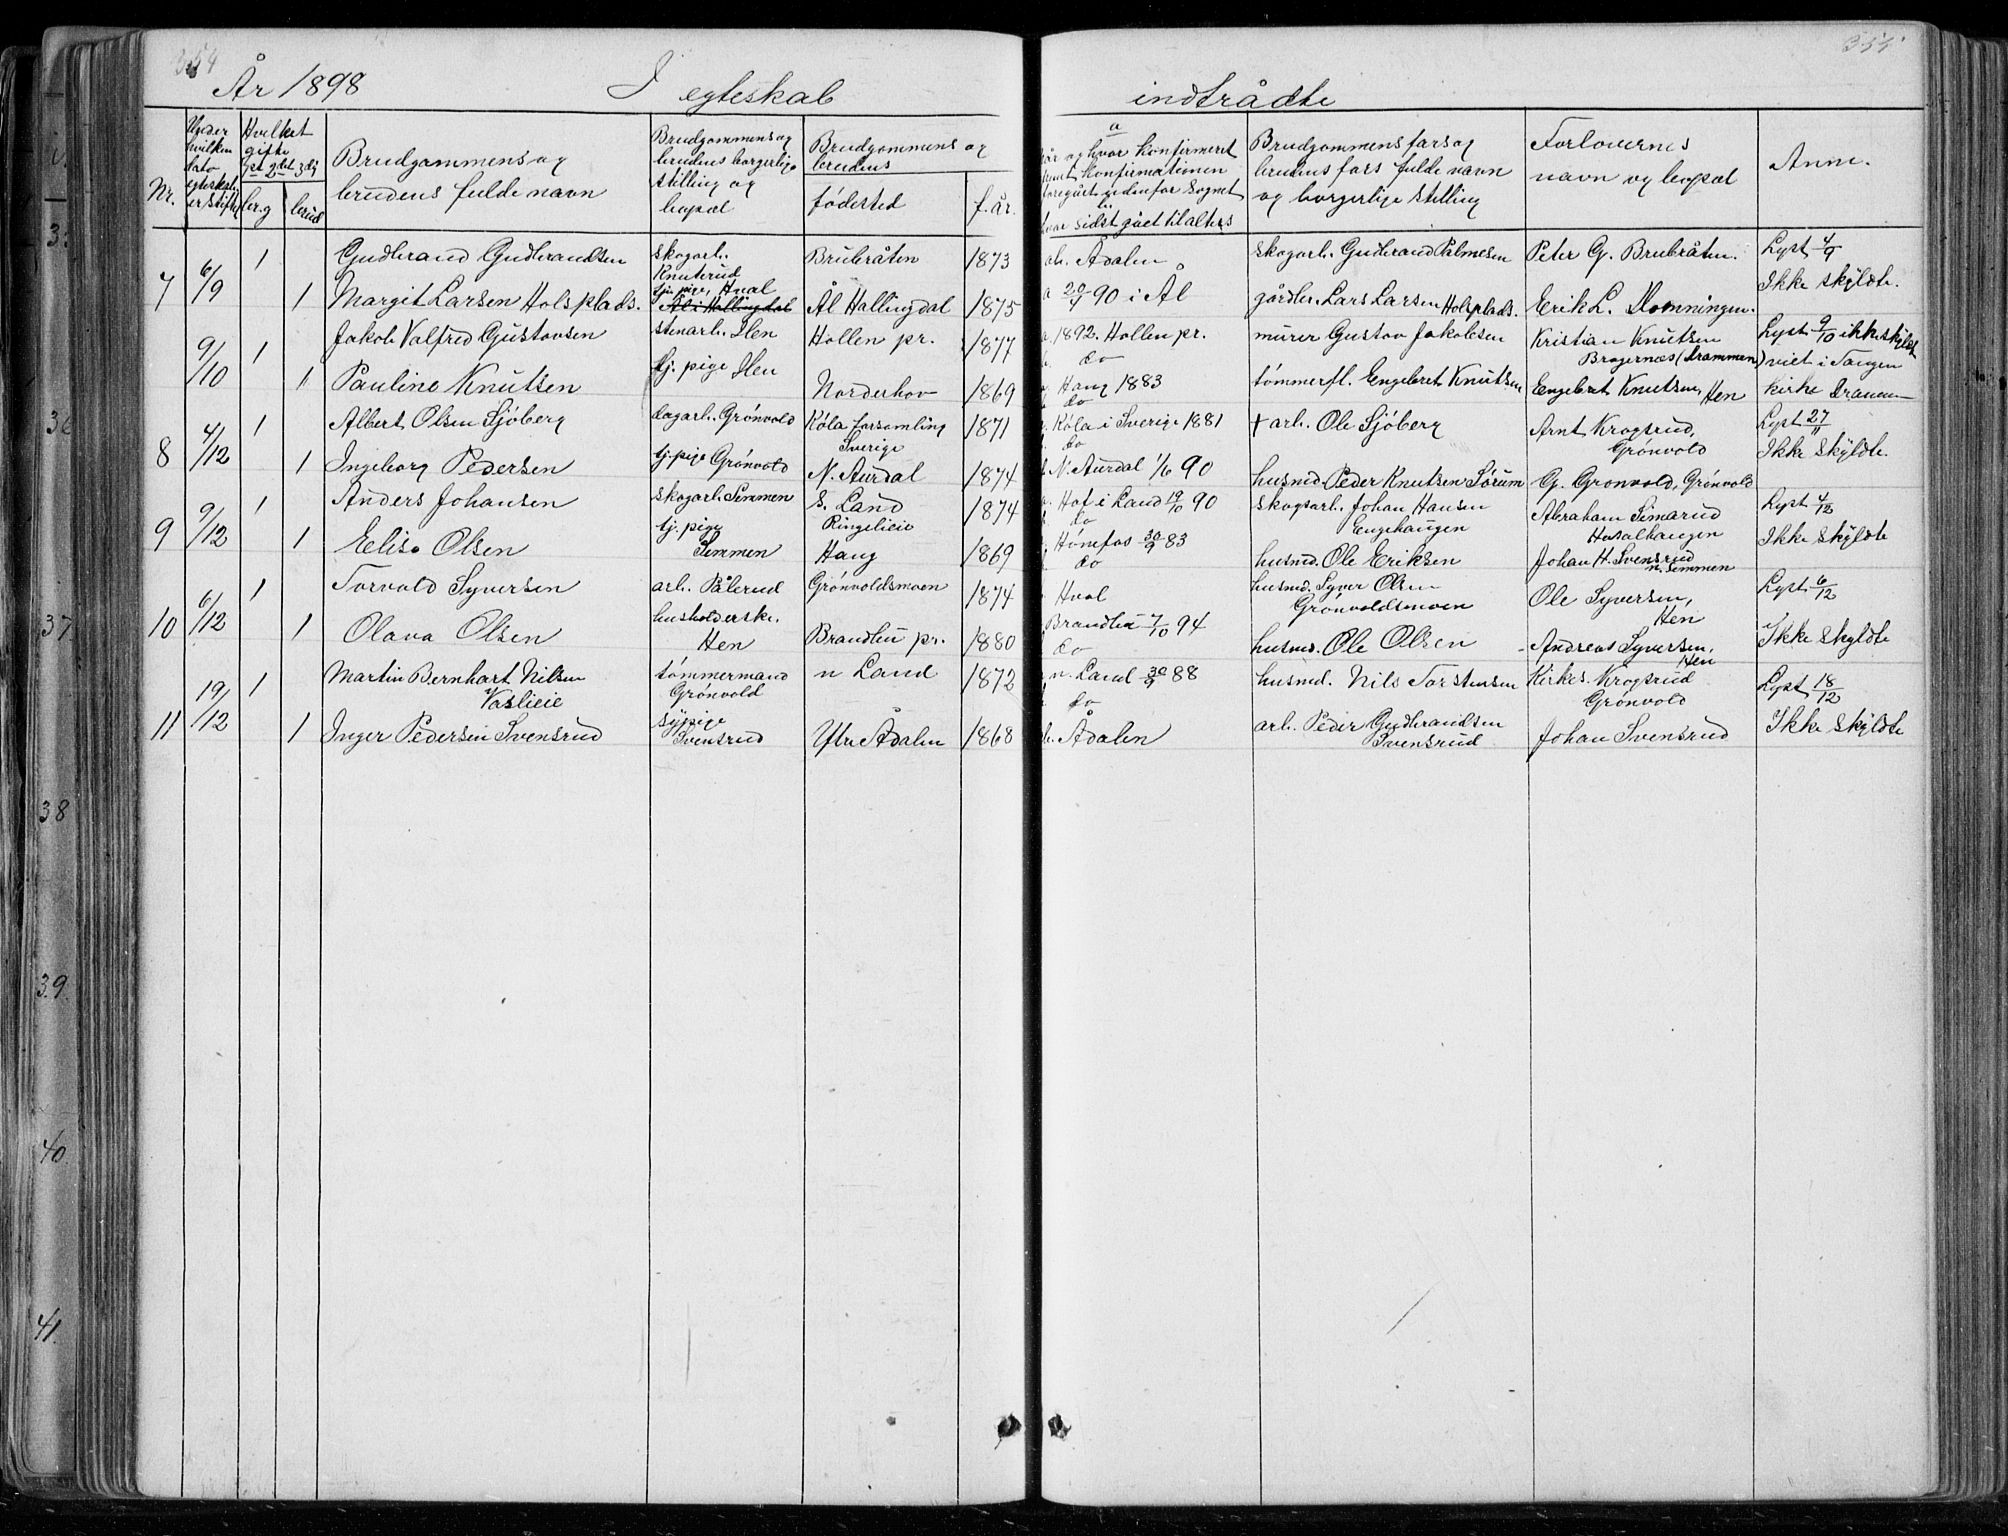 354
355
År 1898 I egteskab indtrådte
Nr.
Under hvilken dato egteskab er stiftet
Hvilket gifte 1st 2det 3dj
br.g brud
Brudgommens og brudens fulde navn
Brudgommens og brudens borgerlige stilling og bopæl
Brudgommens og brudens
fødested f. år.
a
år og hvor konfirmeret
samt konfirmationen foregået udenfor sognet
b
hvor sidst gået til alters
Brudgommens fars og brudens fars fulde navn og borgerlige stilling
Forlovernes navn og bopæl
Anm.
Gudbrand Gudbrandsen skogarb. Knuterud Brubråten 1873 ab. Ådalen skogarb. Gudbrand Palmesen Peter G. Brubråten. Lyst 4/9
7 6/9 1
1 Margit Larsen Holsplads. tj. pige, Hval Ål i Hallingdal Ål Hallingdal 1875 a 20/7 90 i Ål gårdbr. Lars Larsen Holsplads. Erik L. Ikke skyldte.
Jakob Valfred Gustavsen stenarb. Hen Hollen pr. 1877 a. 1892. Hollen pr. murer Gustav Jakobsen Kristian Knutsen Lyst 9/10 ikke skyldt
9/10 1 b. do Bragernæs (Drammen) viet i Tangen
" Pauline Knutsen tj. pige Hen Norderhov 1869 a. Haug 1883 tømmerfl. Engebret Knutsen Engebret Knutsen, Hen kirke Drammen
b. do
Albert Olsen Sjöberg dagarb. Grønvold Köla forsamling Sverige 1871 a. Köla i Sverige 1881 + arb. Ole Sjöberg Arnt Krogsrud, Lyst 27/11
8 4/12 1 b. do Grønvold
1 Ingeborg Pedersen tj. pige Grønvold N. Aurdal 1874 N. Aurdal 1/6 90 husmd. Peder Knutsen Sørum G. Grønvold, Grønvold Ikke skyldte.
Anders Johansen skogarb. Semmen S. Land 1874 a. Hof i Land 19/10 90 skogsarb. Johan Hansen Abraham Semarud Lyst 4/12
9 9/12 1 b. do Engehaugen Hovalhaugen
1 Elise Olsen tj. pige Semmen Ringelieie Haug 1869 a. Hønefos 30/9 83 husmd. Ole Eriksen Johan H. Svensrud n. Semmen Ikke skyldte
b. do
Torvald Syversen arb. Pålerud Grønvoldsmoen 1874 b. Hval husmd. Syver Olsen Ole Syversen, Lyst 6/12
10 6/12 1 Grønvoldsmoen Hen
1 Olava Olsen husholderske. Hen Brandbu pr. 1880 Brandbu 7/10 94 husmd. Ole Olsen Andreas Syversen, Hen Ikke skyldte
do
Martin Bernhart Nilsen Vaslieie tømmermand Grønvold n Land 1872 n. Land 30/9 88 husmd. Nils Torstensen Kirkes. Krogsrud Lyst 18/12
11 19/12 1 b. do Grønvold
1 Inger Pedersen Svensrud sypige Svensrud Ytre Ådalen 1868 b. Ådalen arb. Peder Gudbrandsen Svensrud Johan Svensrud Ikke skyldte
36
37.
38
39.
40
41.